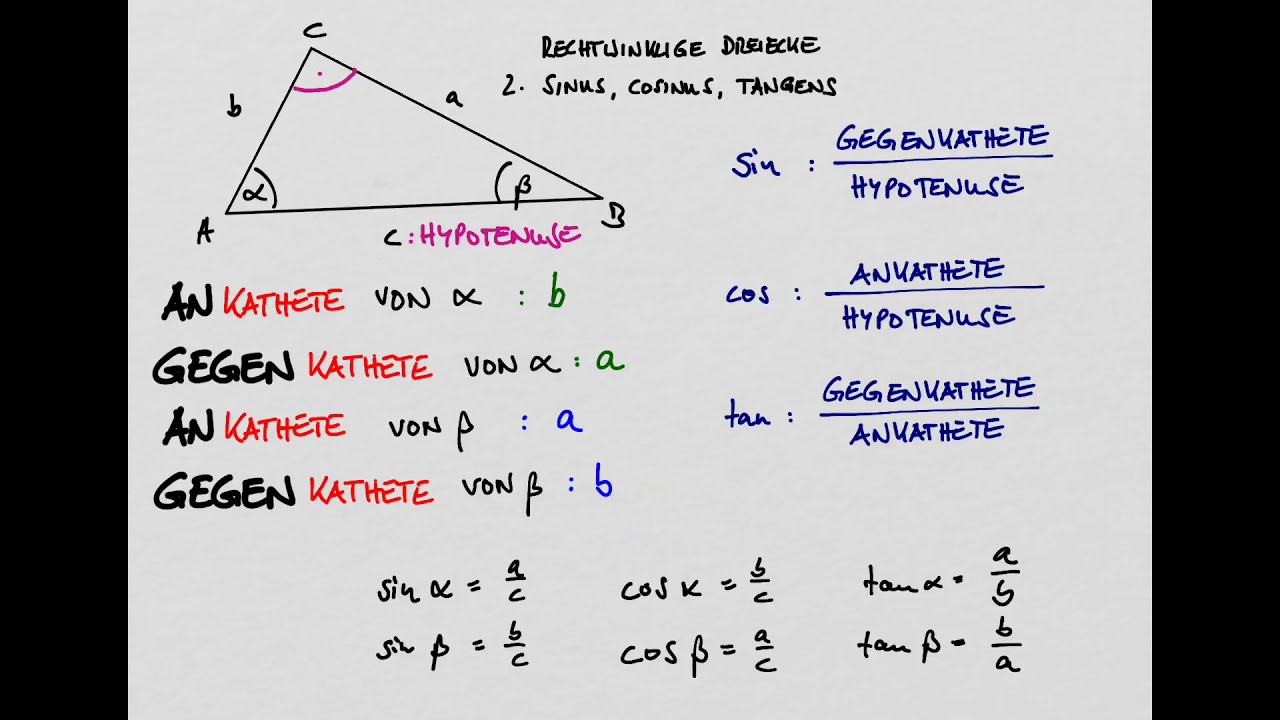 RECHTWINKLIGE DREIECKE
2. SINUS, COSINUS, TANGENS
C
b
a
α
β
A
B
c : HYPOTENUSE
sin : GEGENKATHETE / HYPOTENUSE
cos : ANKATHETE / HYPOTENUSE
tan : GEGENKATHETE / ANKATHETE
ANKATHETE VON α : b
GEGENKATHETE VON α : a
ANKATHETE VON β : a
GEGENKATHETE VON β : b
sin α = a/c cos α = b/c tan α = a/b
sin β = b/c cos β = a/c tan β = b/a